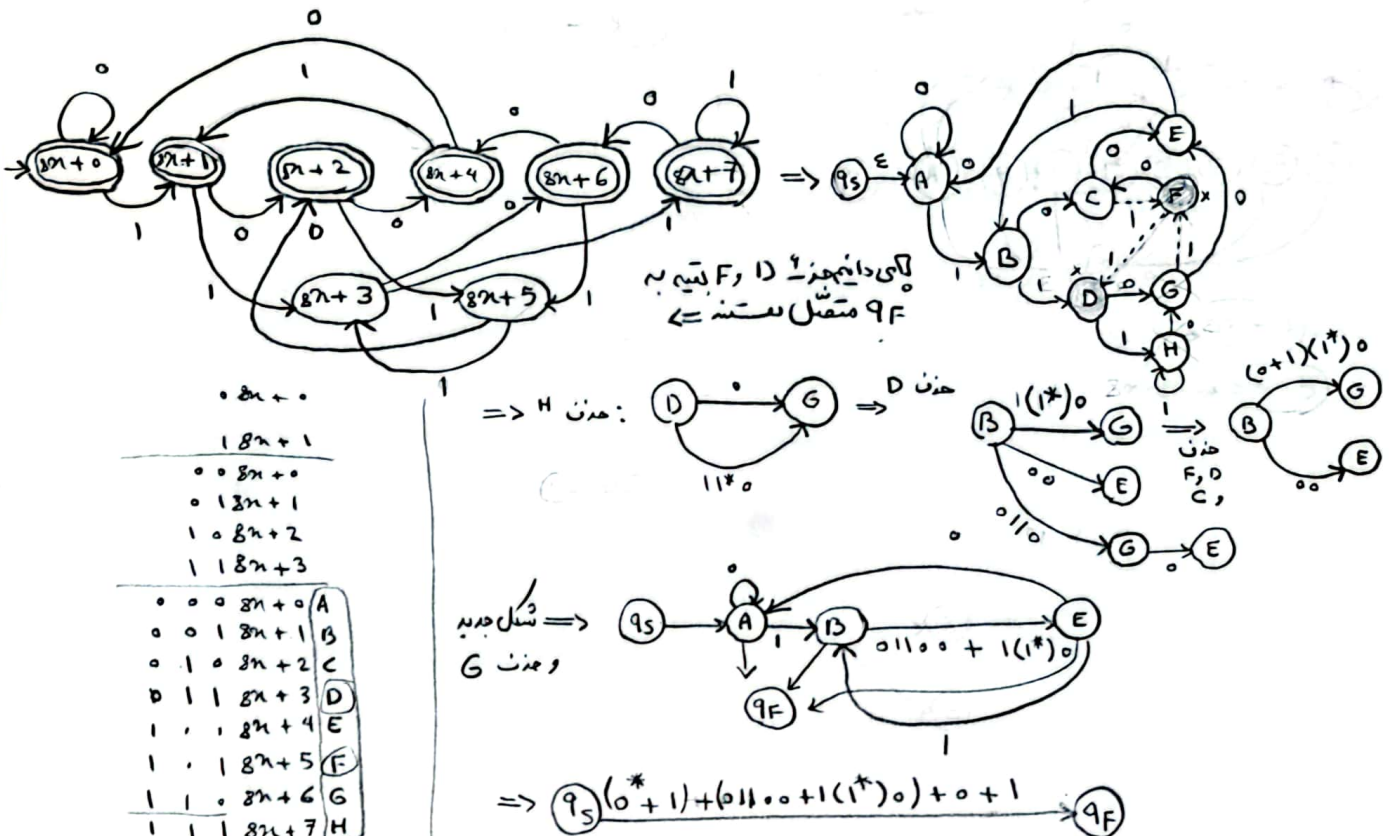 0
0
1
0
0
1
8n+0
8n+1
8n+2
8n+4
8n+6
8n+7
=>
1
0
0
0
0
1
1
1
1
8n+3
8n+5
1
qs
ε
A
0
0
1
E
0
0
C
F
x
0
1
B
0
1
1
1
x
D
0
G
1
H
0
1
D و F به
qF متصل هستند <=
0 8n+0
1 8n+1
0 0 8n+0
0 1 8n+1
1 0 8n+2
1 1 8n+3
0 0 0 8n+0 A
0 0 1 8n+1 B
0 1 0 8n+2 C
0 1 1 8n+3 D
1 0 0 8n+4 E
1 0 1 8n+5 F
1 1 0 8n+6 G
1 1 1 8n+7 H
=> حذف H :
D 0 G
11*0
=> حذف D
B 1(1*)0 G
00 E
0110 G 0 E
=>
حذف
F, D
و C
(0+1)(1*)0
B G
00 E
شکل جدید =>
و حذف G
0
0
qs A 1 B 01100 + 1(1*)0 E
qF
1
=> qs (0*+1)+(01100+1(1*)0)+0+1 qF